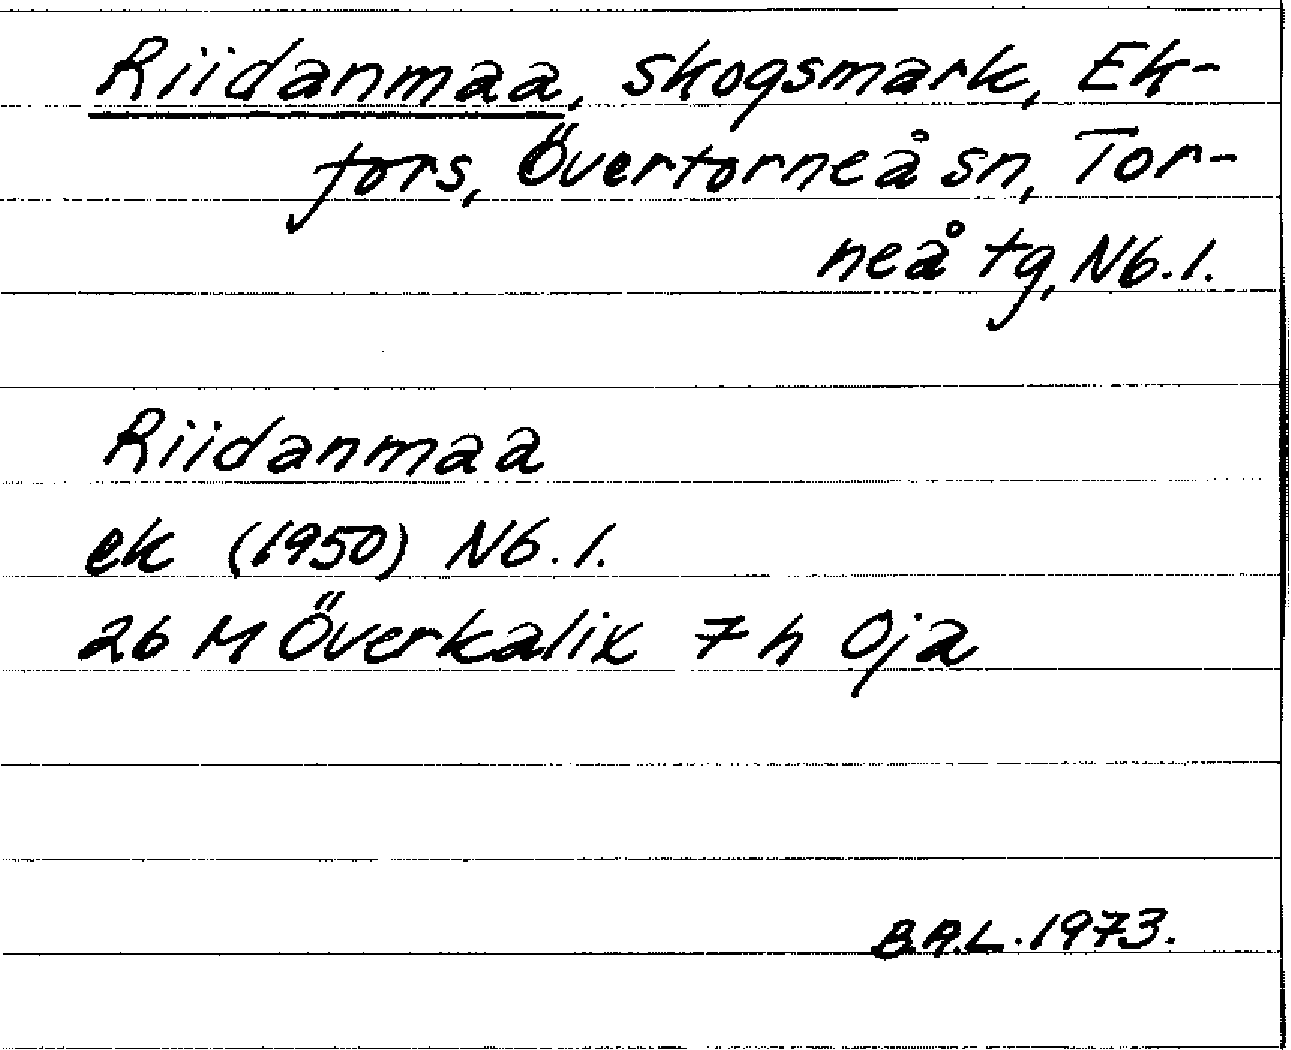 Riidanmaa, skogsmark, Ek-
fors, Övertorneå sn, Tor-
neå tg, Nb. l.
Riidanmaa
ek (1950) Nb. l.
26 M Överkalix 7 h Oja
B.A.L. 1973.